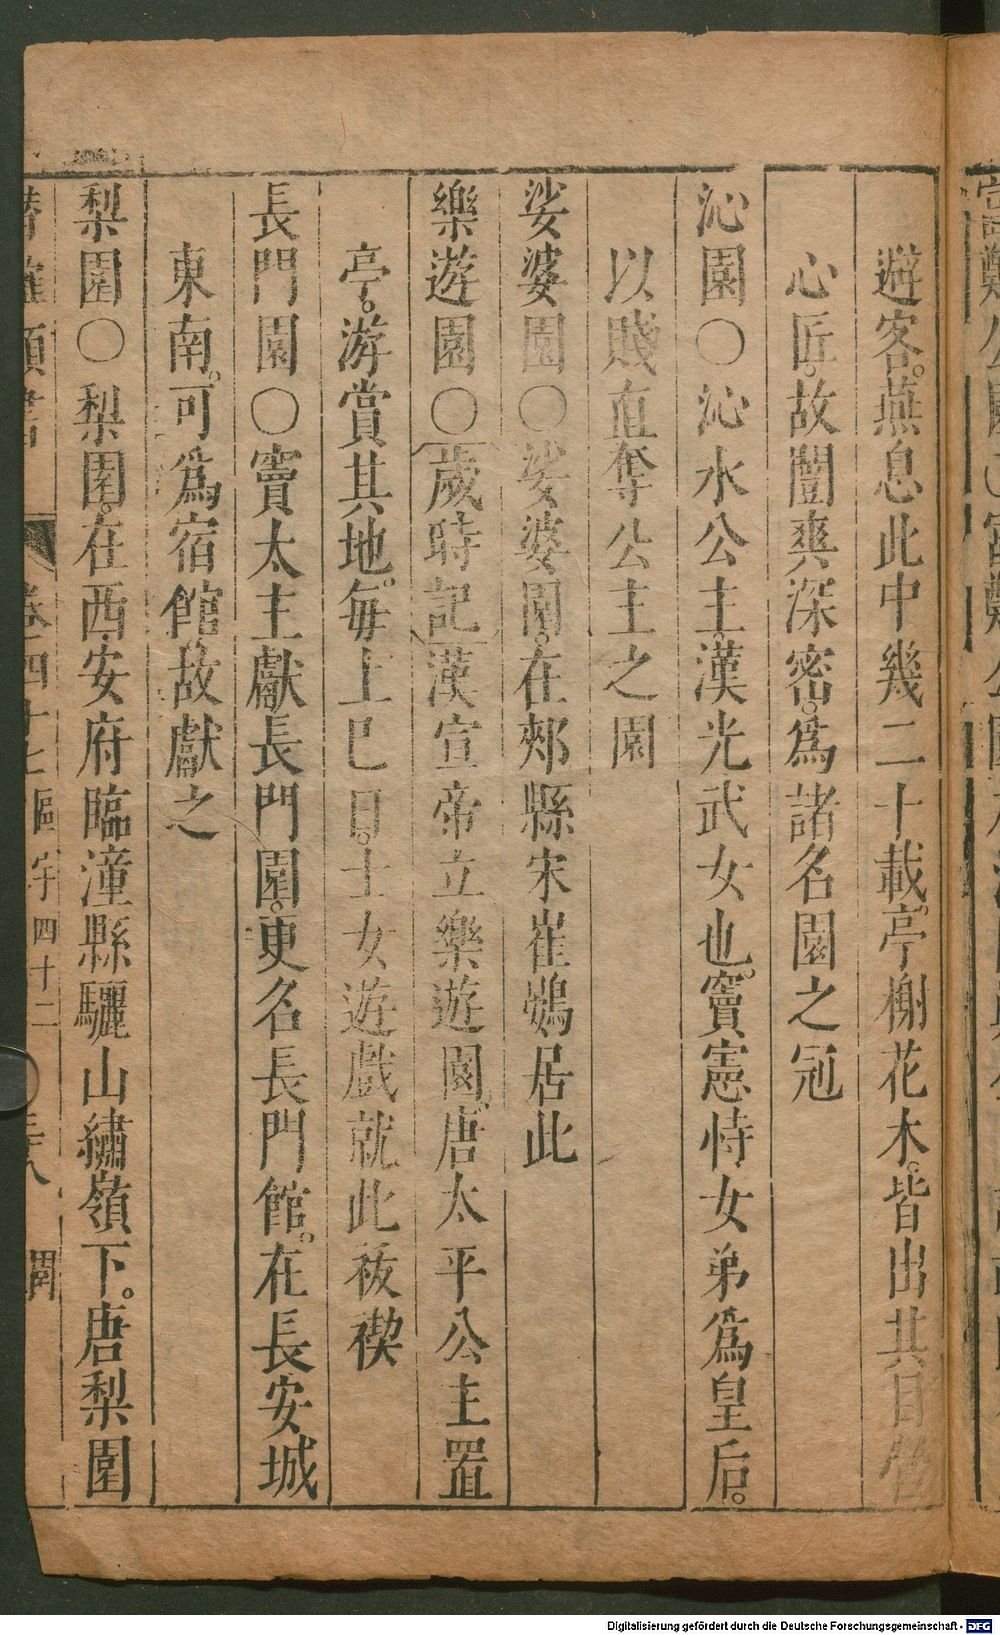 避客。燕息此中幾二十載。亭榭花木。皆出其目營
心匠。故闓爽深密。爲諸名園之冠
沁園〇沁水公主。漢光武女也。竇憲恃女弟爲皇后。
以賤直奪公主之園
娑婆園〇娑婆園。在郟縣宋崔鶠居此
樂遊園〇歲時記漢宣帝立樂遊園。唐太平公主置
亭。游賞其地。每上巳日。士女遊戲就此祓禊
長門園〇竇太主獻長門園。更名長門館。在長安城
東南。可爲宿館。故獻之
梨園〇梨園。在西安府臨潼縣驪山繡嶺下。唐梨園
卷四十七區宇四十二
Digitalisierung gefördert durch die Deutsche Forschungsgemeinschaft - DFG